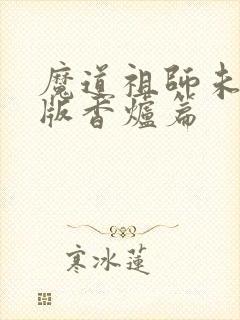 魔道祖師未
版香爐篇
寒冰蓮